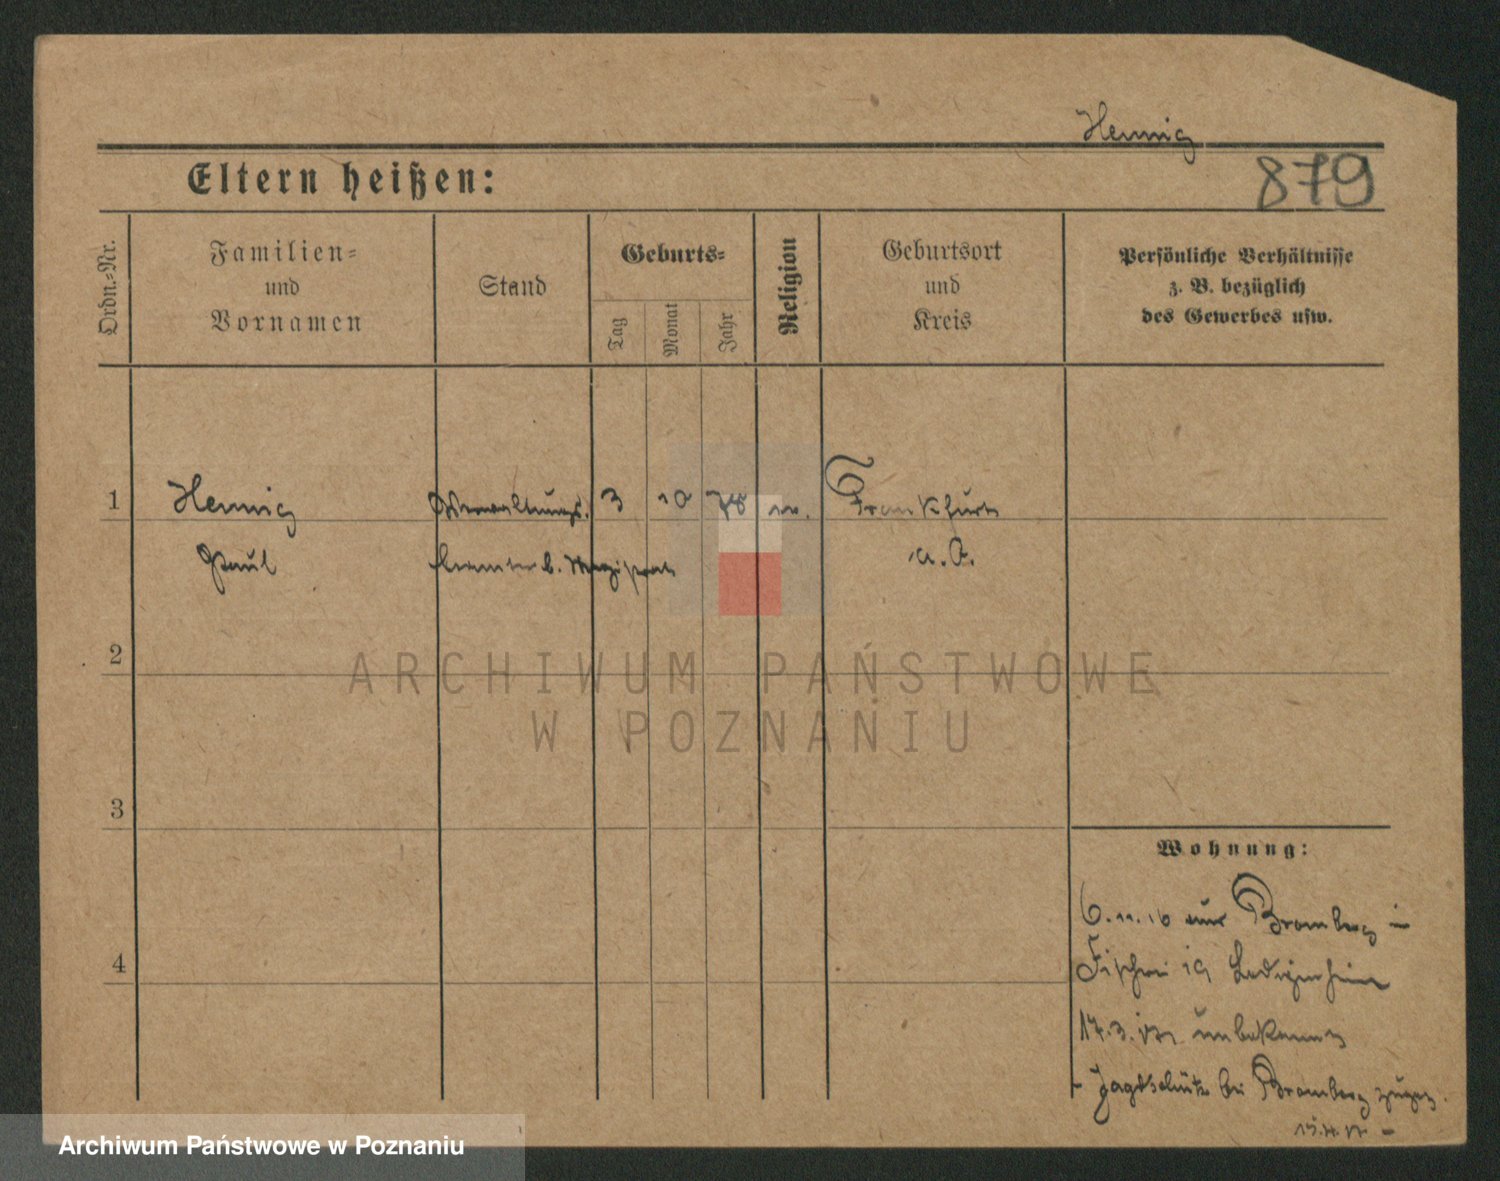 Hennig
Eltern heißen:
879
Ordn.=Nr.
Familien=
und
Vornamen
Stand
Geburts=
Tag
Monat
Jahr
Religion
Geburtsort
und
Kreis
Persönliche Verhältnisse
z. B. bezüglich
des Gewerbes usw.
1
Hennig
Verwaltungs.
3
10
78
ev.
Frankfurt
Paul
beamter b. Magistrat
a. O.
2
ARCHIWUM PAŃSTWOWE
W POZNANIU
3
Wohnung:
6.11.16 aus Bromberg in
4
Fischerei 19 Ledigenheim
17.3.17 unbekannt
- Jagdschütz bei Bromberg
17 -
Archiwum Państwowe w Poznaniu